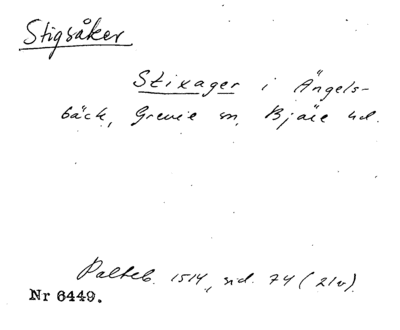 Stigsåker
Stixager i Ängels-
bäck, Grevie sn, Bjäre hd.
Palteb. 1514, sid. 74 (21v).
Nr 6449.